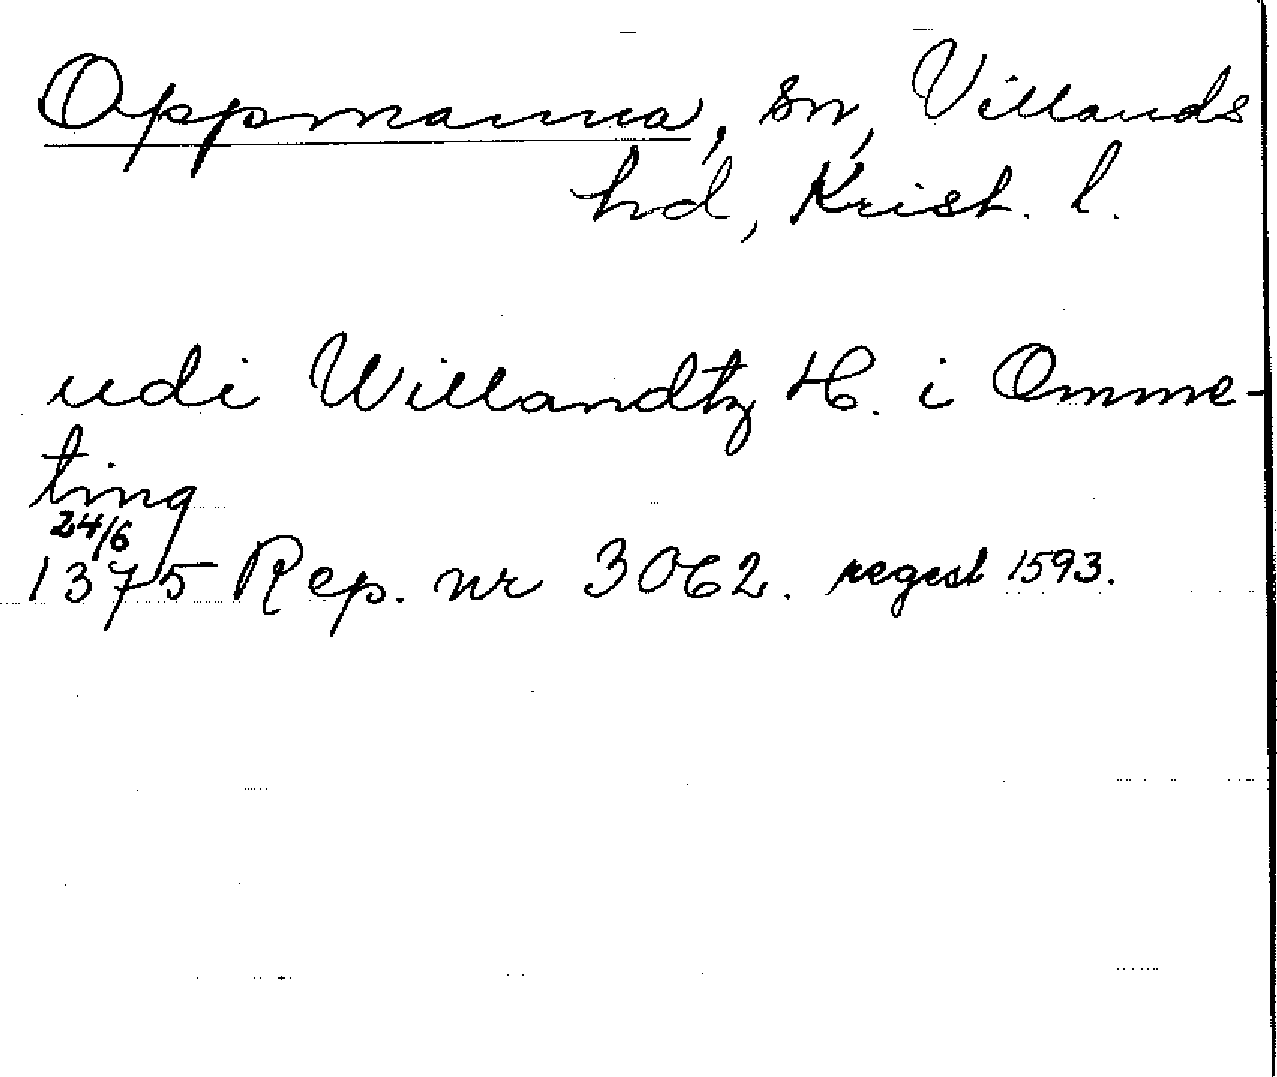 Oppmanna, sn, Villands
hd, Krist. l.
udi Willandtz H. i Omme-
ting
24/6
1375 Rep. nr 3062. regest 1593.